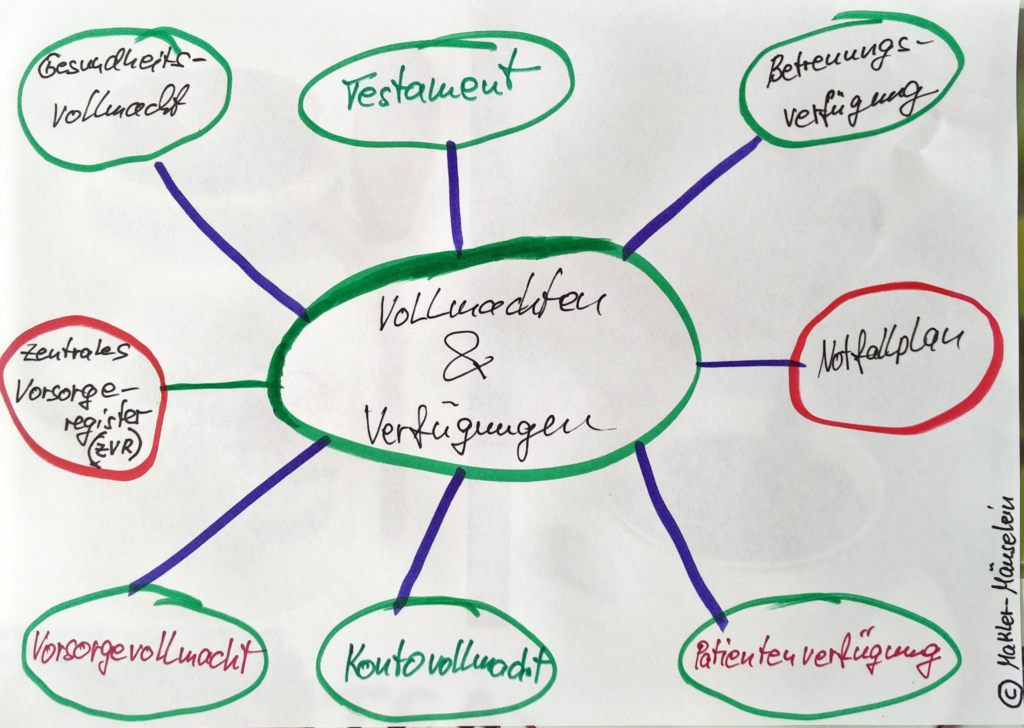 Gesundheits-
vollmacht
Testament
Betreuungs-
verfügung
Vollmachten
&
Verfügungen
Zentrales
Vorsorge-
register
(ZVR)
Notfallplan
Vorsorgevollmacht
Kontovollmacht
Patientenverfügung
© Makler-Mäuselein